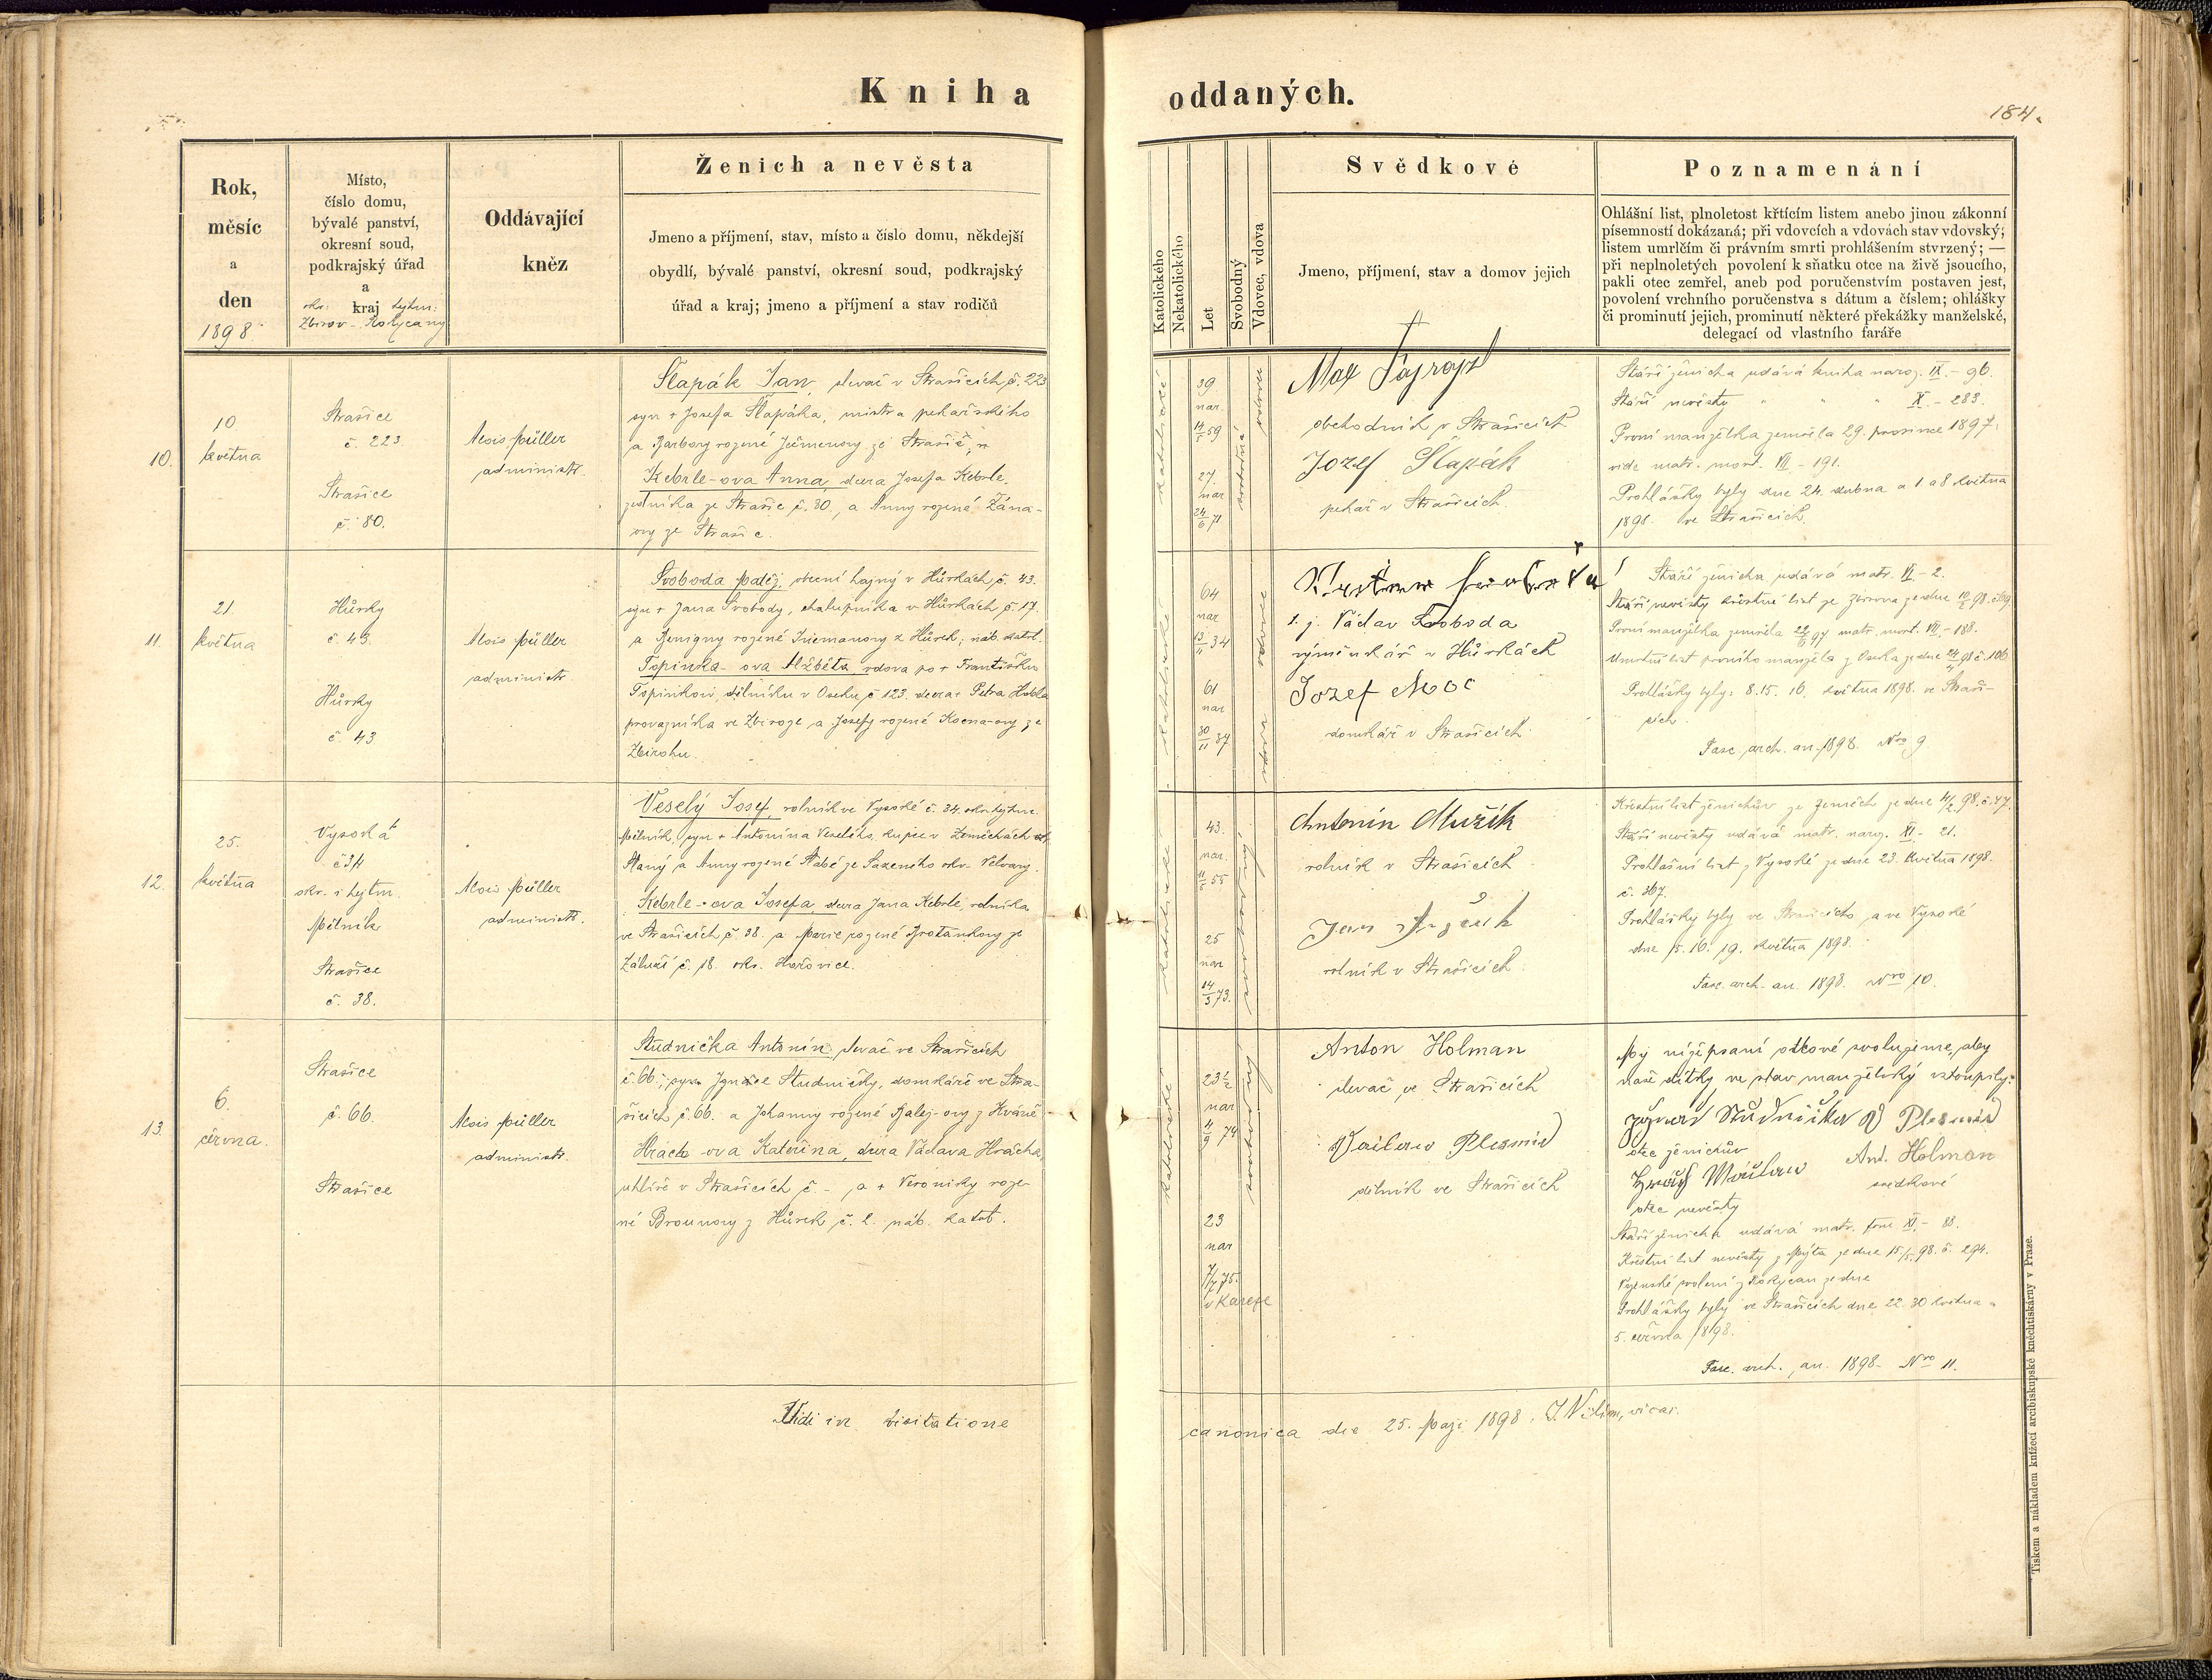 Kniha oddaných.
184.
Rok,
měsíc
a
den
1898.
Místo,
číslo domu,
bývalé panství,
okresní soud,
podkrajský úřad
a
okr: kraj hejtm:
Zbirov - Rokycany
Oddávající
kněz
Ženich a nevěsta
Jmeno a příjmení, stav, místo a číslo domu, někdejší
obydlí, bývalé panství, okresní soud, podkrajský
úřad a kraj; jmeno a příjmení a stav rodičů
Katolického
Nekatolického
Let
Svobodný
Vdovec, vdova
Svědkové
Jmeno, příjmení, stav a domov jejich
Poznamenání
Ohlášní list, plnoletost křtícím listem anebo jinou zákonní
písemností dokázaná; při vdovcích a vdovách stav vdovský;
listem umrlčím či právním smrti prohlášením stvrzený; —
při neplnoletých povolení k sňatku otce na živě jsoucího,
pakli otec zemřel, aneb pod poručenstvím postaven jest,
povolení vrchního poručenstva s dátum a číslem; ohlášky
či prominutí jejich, prominutí některé překážky manželské,
delegací od vlastního faráře
10.
10
května
Strašice
č. 223.
Strašice
č. 80.
Alois Müller
administr.
Šlapák Jan, slevač v Strašicích č. 223
syn + Josefa Šlapáka, mistra pekařského
a Barbory rozené Ječmenovy ze Strašic
Kebrle-ova Anna, dcera Josefa Kebrle,
zedníka ze Strašic č. 80, a Anny rozené
ovy ze Strašic.
katolické
39
nar.
14/5 59
27.
nar
24/6 71
svobodná
vdovec
Max
obchodník v Strašicích
Jozef Šlapák
pekař v Strašicích.
Stáří ženicha udává kniha naroz. IX. - 96.
Stáří nevěsty " " " X. - 283.
První manželka zemřela 29. prosince 1897,
vide matr. mort. VII - 191.
Prohlášky byly dne 24. dubna a 1. a 8. května
1898. ve Strašicích.
11.
21.
května
Hůrky
č. 43.
Hůrky
č. 43
Alois Müller
administr
Svoboda Matěj, obecní hajný v Hůrkách č. 43.
syn + Jana Svobody, chalupníka v Hůrkách č. 17.
a Benigny rozené z Hůrek; náb. katol.
Topinka-ova Alžběta vdova po + Františku
Topinkovi, dělníku v Oseku č. 123. dcera + Petra
provazníka ve Zbiroze a Josefy rozené ze
Zbirohu.
katolické
64
nar
13/11 34
61
nar
30/11 37
vdovec
vdova
s. j. Václav Svoboda
výměnkář v Hůrkách
Jozef Moc
domkář v Strašicích
Stáří ženicha udává matr. VI - 2.
Stáří nevěsty křestní list ze Zbirova ze dne
První manželka zemřela matr. mort. VII. - 188.
Umrtní list prvního manžela z Oseka ze dne č. 106
Prohlášky byly: 8. 15. 16. května 1898. ve Straši-
cích.
Fasc. arch. an. 1898. Nro 9.
12.
25.
května
Vysoká
č 34
okr. i hejtm.
Mělník
Strašice
č. 38.
Alois Müller
administr.
Veselý Josef, rolník ve Vysoké č. 34. okr. hejtm.
Mělník, syn + Antonína Veselého, kupce v Zeměchách okr.
Slaný a Anny rozené ze Sazeného okr. Velvary.
Kebrle-ova Josefa, dcera Jana Kebrle, rolníka
ve Strašicích č. 38. a Marie rozené Brotankovy ze
Záluží č. 18. okr. Hořovice.
katolické
43.
nar.
11/5 55
25
nar
14/3 73.
svobodný
Antonín Mužík
rolník v Strašicích
Jan
rolník v Strašicích
Křestní list ženichův ze Zeměch ze dne 4/2 98. č. 47.
Stáří nevěsty udává matr. naroz. XI - 21.
Prohlašní list z Vysoké ze dne 23. května 1898.
č. 367.
Prohlášky byly ve Strašicích a ve Vysoké
dne 15. 16. 19. května 1898.
Fasc. arch. an. 1898. Nro 10.
13.
6.
června.
Strašice
č. 66.
Strašice
Alois Müller
administr.
Studnička Antonín, slevač ve Strašicích
č. 66.; syn Ignáce Studničky, domkáře ve Stra-
šicích č. 66. a Johanny rozené z
Hrach-ova Kateřina, dcera Václava Hracha,
uhlíře v Strašicích č. - , a + Veroniky roze-
né Brounovy z Hůrek č. 2. náb. katol.
katolické
23½
nar
4/9 74
23
nar
7/7 75.
v Kařeze
svobodný
Anton Holman
slevač ve Strašicích
Vaclaw Plesmid
dělník ve Strašicích
My níže psaní otcové svolujeme, aby
naše dítky ve stav manželský vstoupily:
Studnička V Plesmid
otec ženichův Ant. Holman
Hrach svědkové
otec nevěsty
Stáří ženicha udává matr. tom XI. - 88.
Křestní list nevěsty z Mýta ze dne 15/5 98. č. 294.
Vojenské svolení z Rokycan ze dne
Prohlášky byly ve Strašicích dne 22. 30 května a
5. června 1898.
Fasc. arch. an. 1898. Nro 11.
Vidi in visitatione canonica die 25. Maji 1898. vicar.
Tiskem a nákladem knížecí arcibiskupské knihtiskárny v Praze.